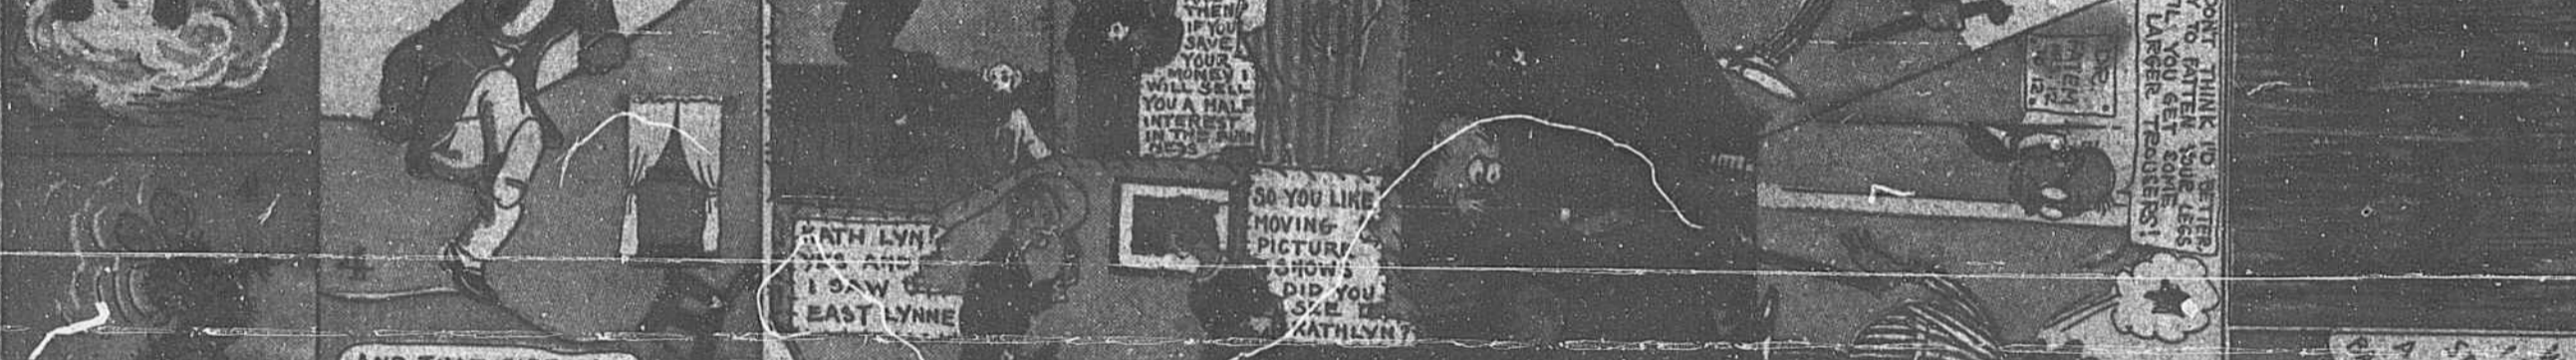 THEN
IF YOU
SAVE
YOUR
MONEY I
WILL SELL
YOU A HALF
INTEREST
IN THE BUSI
NESS
KATH LYN!
YES AND
I SAW
EAST LYNNE
SO YOU LIKE
MOVING
PICTURE
SHOWS
DID YOU
SEE
KATHLYN?
DON'T THINK I'D BETTER
TRY TO FATTEN YOUR LEGS
'TIL YOU GET SOME
LARGER TROUSERS!
DR.
FATEM
12.